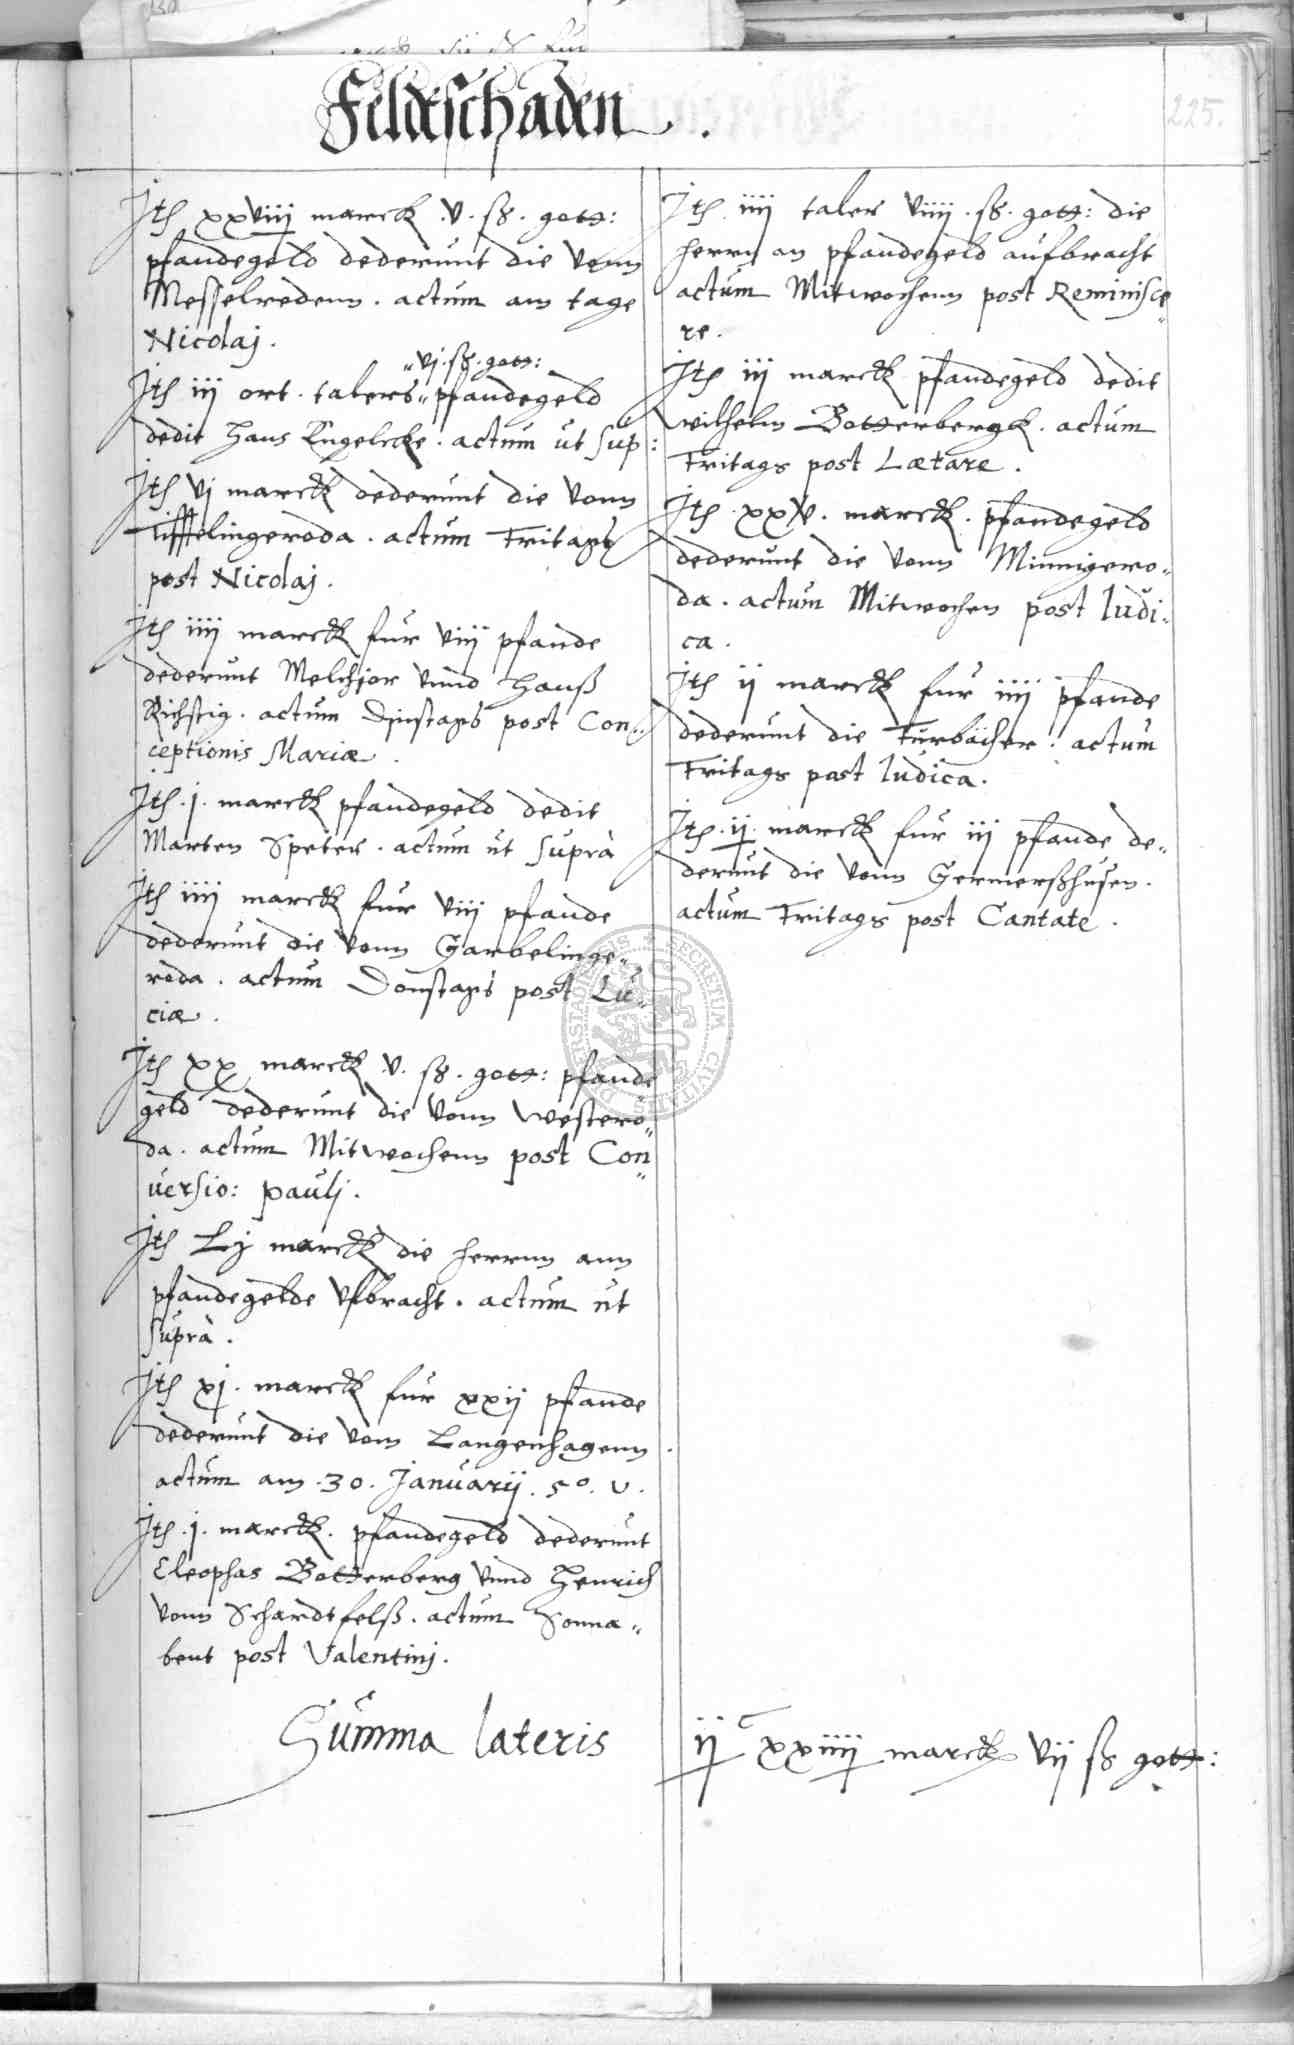 Feldtschaden.
225.
Jtem xxviij marck .v. ß. gott:
pfandegeld dederunt die vonn
Messelredenn. actum am tage
Nicolaj.
"vj. ß. gott:
Jtem iij ort. talers" pfandegeld
dedit Hans Engelcke. actum ut sup:
Jtem vj marck dederunt die vonn
Tifftelingeroda. actum Fritags
post Nicolaj.
Jtem iiij marck fur viij pfande
dederunt Melchior vnnd Hanß
Richstig. actum Dinstags post Con=
ceptionis Mariæ.
Jtem .j. marck pfandegeld dedit
Marten Speter. actum ut suprà
Jtem iiij marck fur viij pfande
dederunt die vonn Garbelinge=
roda. actum Donstags post Lu=
ciæ.
Jtem xx marck v. ß. gott: pfande
geld dederunt die vonn Westero=
da. actum Mitwochenn post Con=
uersio: paulj.
Jtem Lj marck die herrnn ann
pfandegelde vfbracht. actum ut
suprà.
Jtem xj. marck fur xxij pfande
dederunt die vom Langenhagenn.
actum am .30. Januarij. 50. v.
Jtem .j. marck. pfandegeld dederunt
Cleophas Botterberg vnnd Henrich
vonn Schardtfelß. actum Sonna=
bent post Valentinj.
Jtem iiij taler viiij. ß. gott: die
herrn an pfandegeld aufbracht
actum Mitwochenn post Reminisce=
re.
Jtem iij marck pfandegeld dedit
wilhelm Botterbergk. actum
Fritags post Lætare.
Jtem xxv. marck. pfandegeld
dederunt die vonn Minnigero=
da. actum Mitwochen post Iudi=
ca.
Jtem ij marck fur iiij pfande
dederunt die Furbächer. actum
Fritags post Iudica.
Jtem .ij. marck fur iij pfande de=
derunt die vonn Germerßhusen.
actum Fritags post Cantate.
Summa lateris
ij c xxiiij marck vij ß gott:
SECRETUM CIVITATIS DUDERSTADIESIS